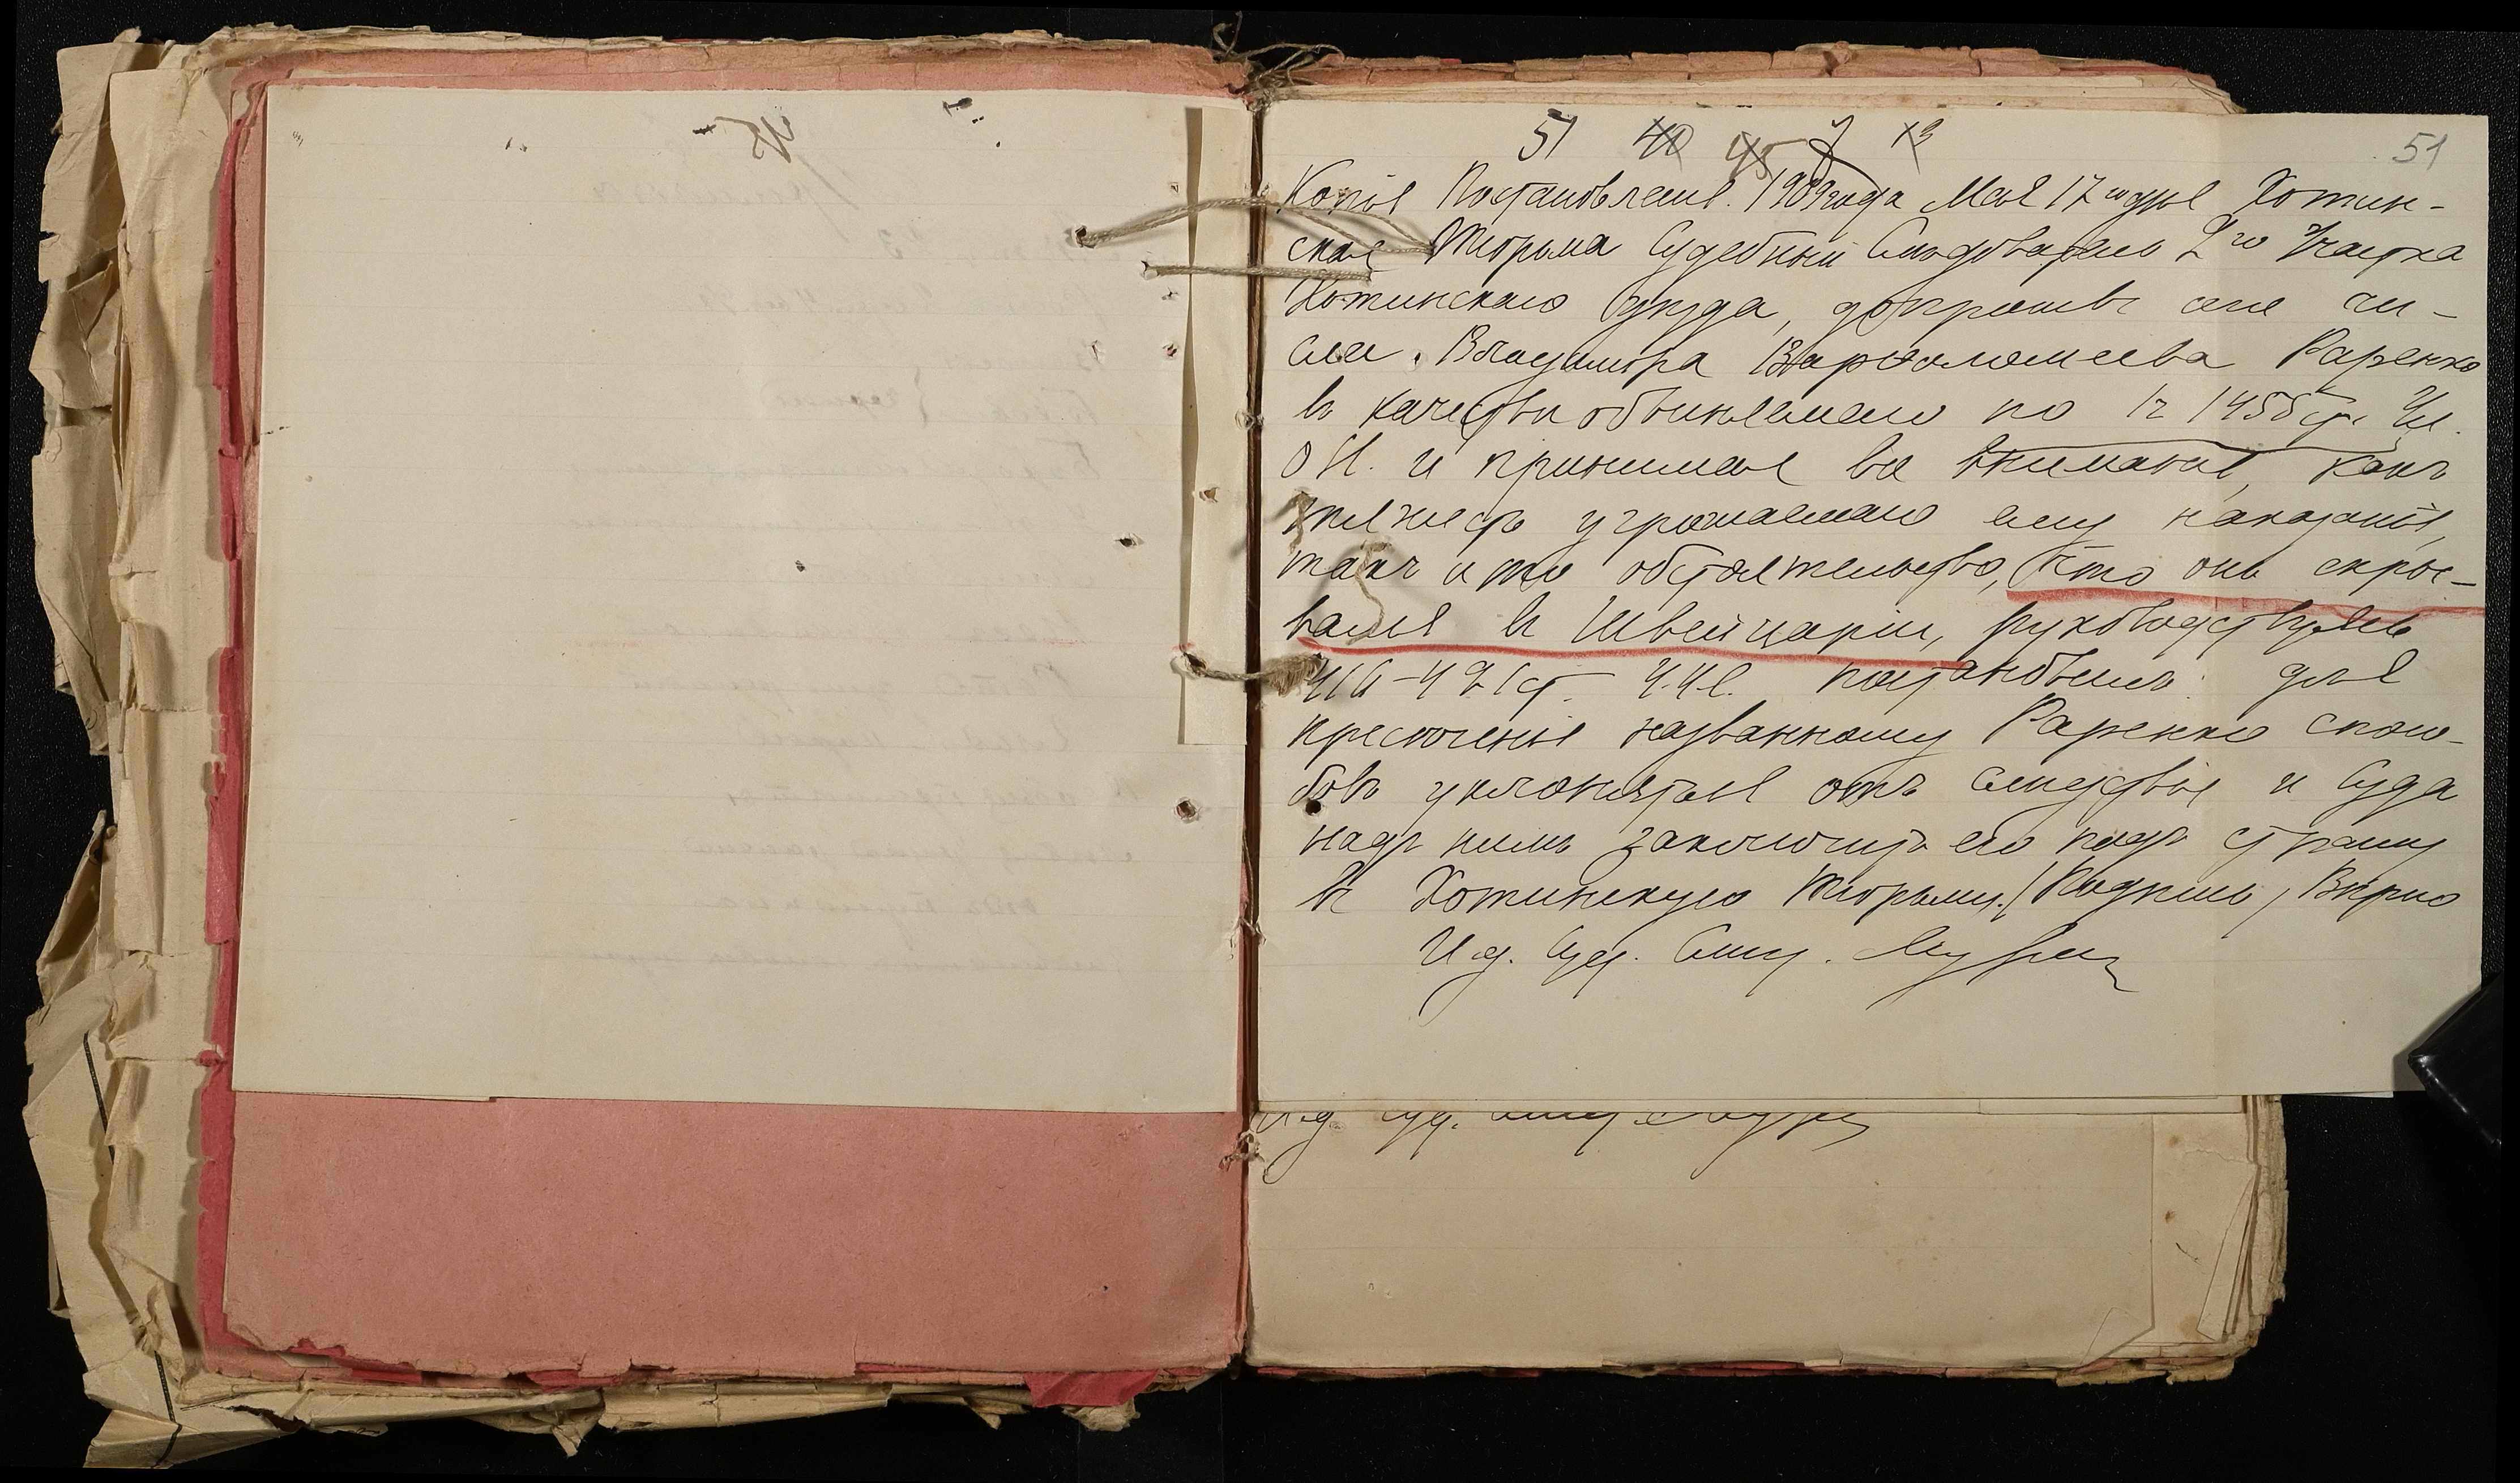 51 40 45 7 13
51
Копія Постановленія. 1909 года Мая 17 дня Хотин-
ская Тюрьма Судебный Слѣдователь 2го Участка
Хотинскаго уѣзда, допросивъ сего чи-
сла Владиміра Варѳоломеева Раренко
въ качествѣ обвиняемаго по 1 ч 1455 ст. Ул.
о Н. и принимая во вниманіе, какъ
тяжесть угрожаемаго ему наказанія,
такъ и то обстоятельство, что онъ скры-
вался въ Швейцаріи, руководствуясь
416-421 ст. У.У.С. постановилъ: для
пресѣченія названному Раренко спосо-
бовъ уклоняться отъ слѣдствія и суда
надъ нимъ заключить его подъ стражу
въ Хотинскую тюрьму. /Подпись/ Вѣрно
И. д. Суд. Слѣд.
И. д. Суд. Слѣд.